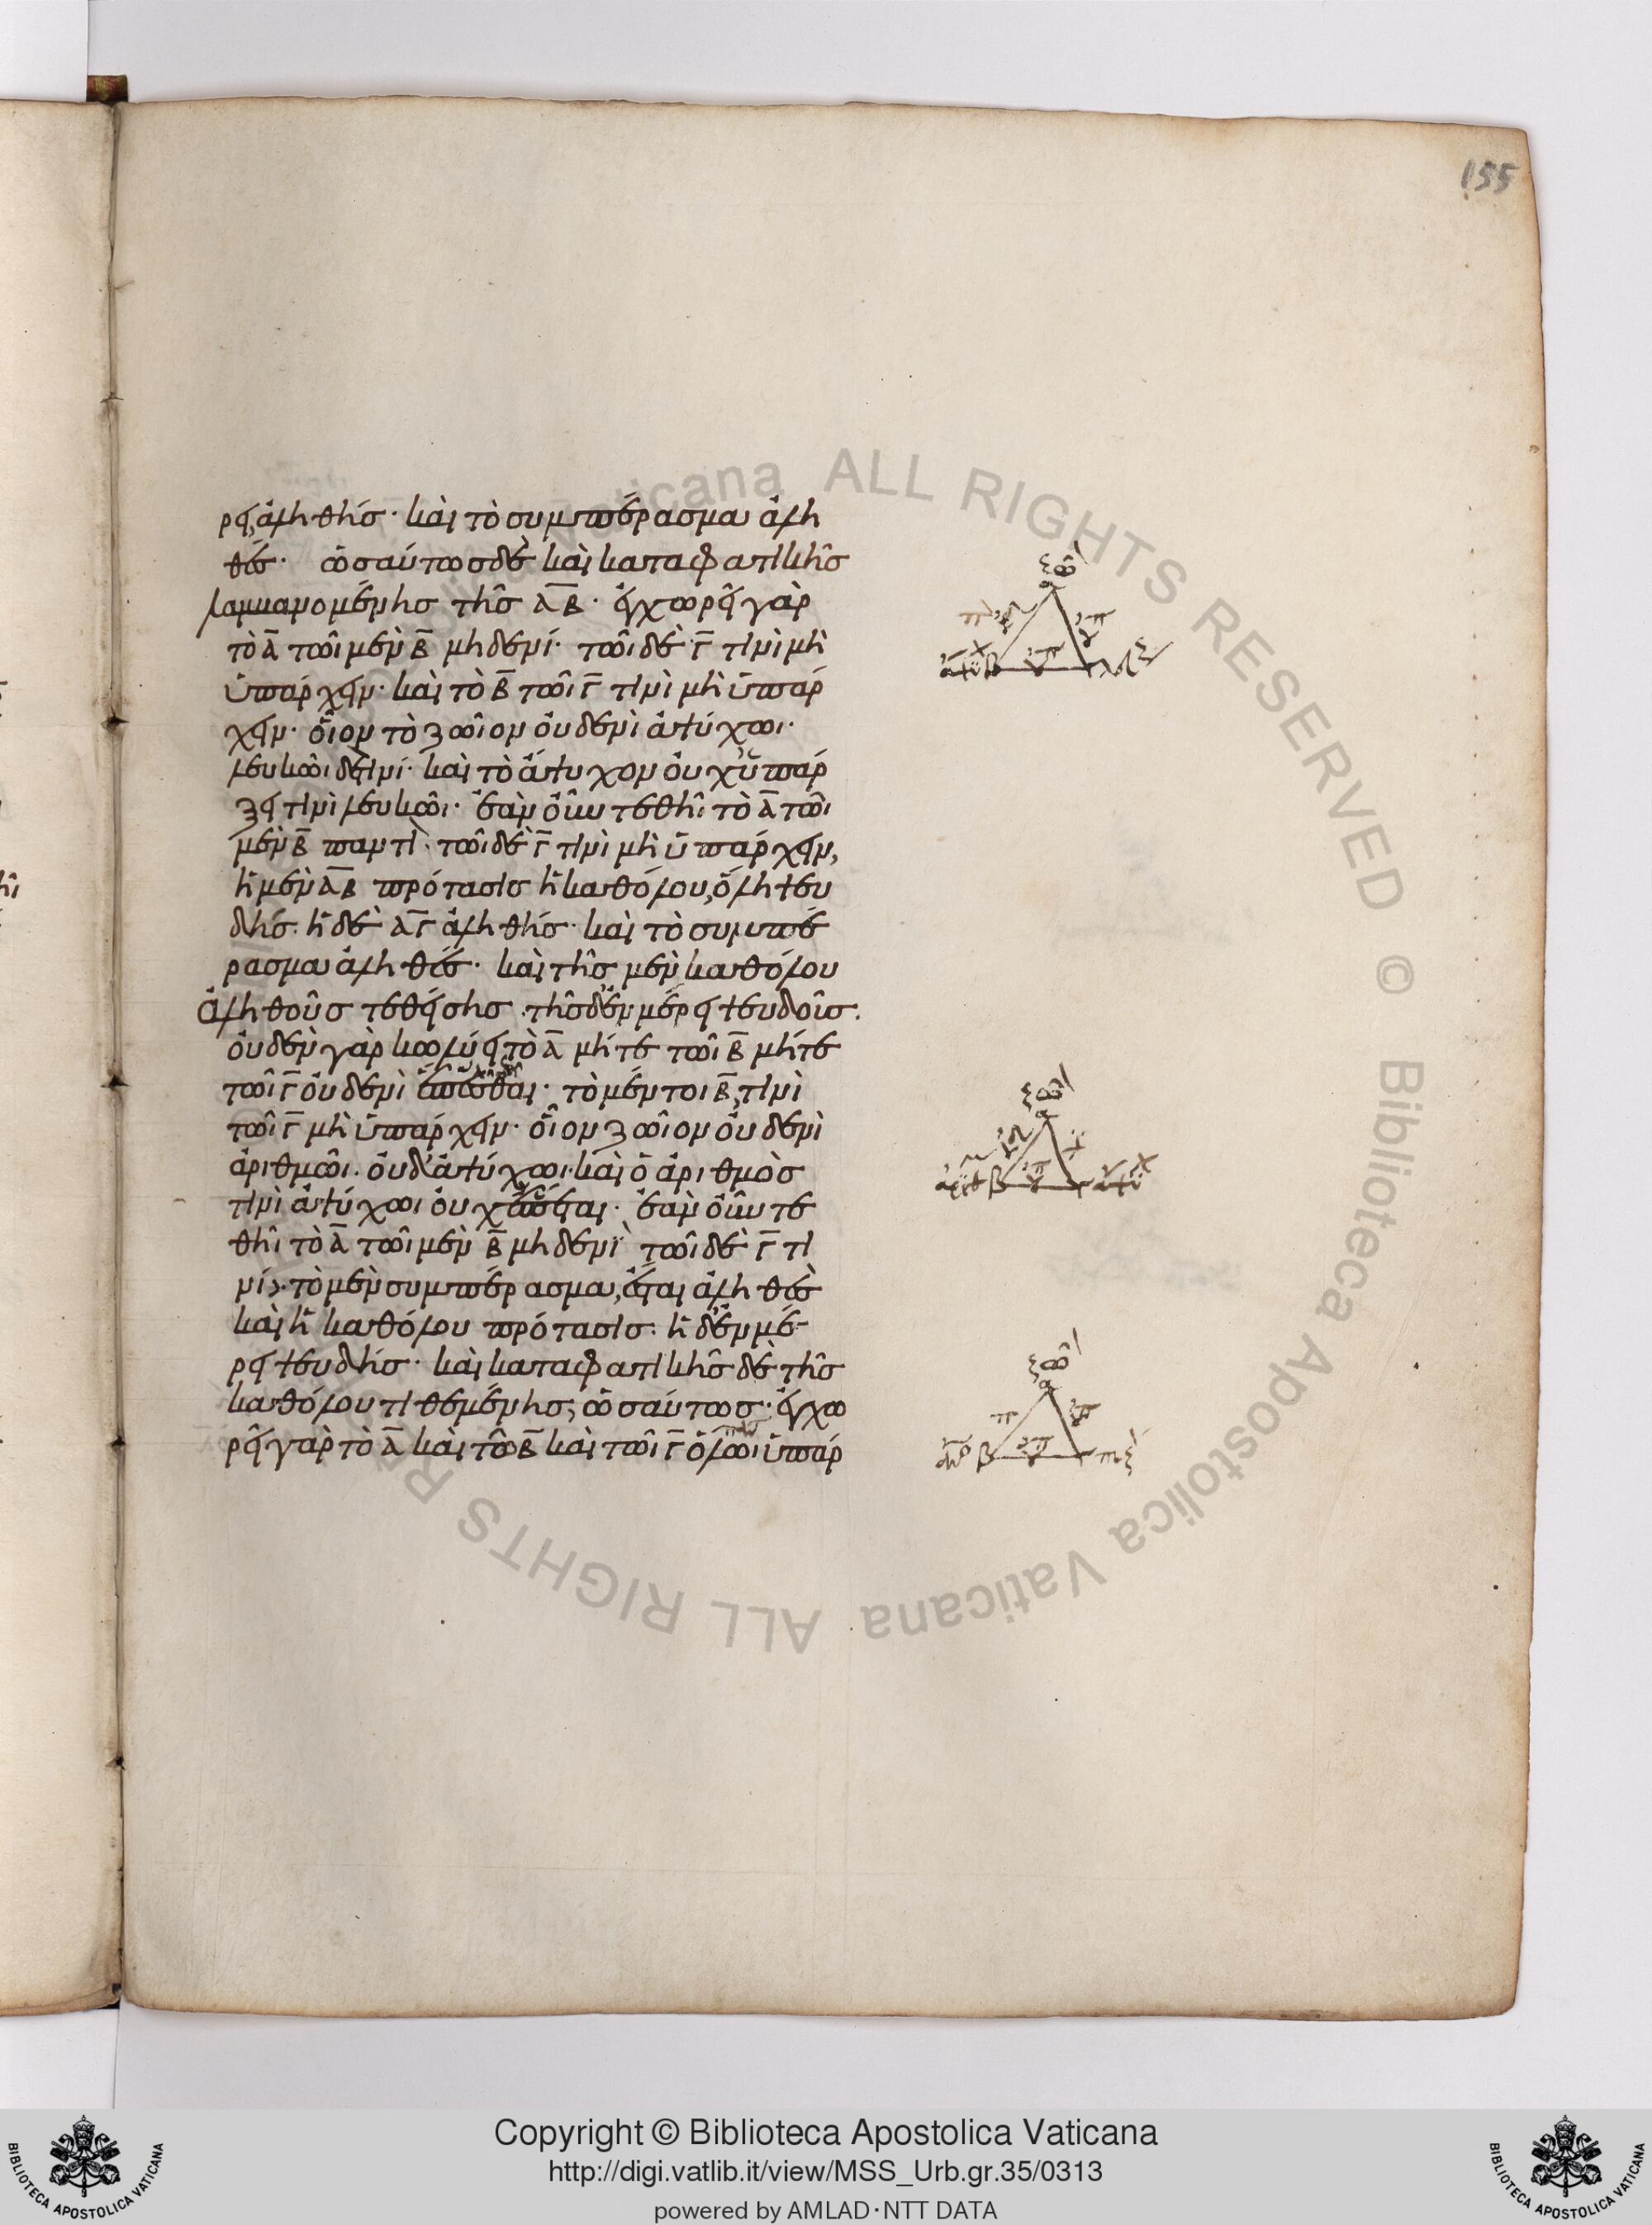 155
ρει, ἀληθής· καὶ τὸ συμπέρασμα ἀλη
θές· ὡσαύτως δὲ καὶ καταφατικῆς
λαμβανομένης τῆς ΑΒ· ἐγχωρεῖ γὰρ
τὸ Α τῶι μὲν Β μηδενί· τῶι δὲ Γ τινὶ μὴ
ὑπάρχειν· καὶ τὸ Β τῶι Γ τινὶ μὴ ὑπάρ
χειν· οἷον τὸ ζῶιον οὐδενὶ ἀψύχωι·
λευκῶι δὲ τινί· καὶ τὸ ἄψυχον οὐχ ὑπάρ
ξει τινὶ λευκῶι· ἐὰν οὖν τεθῆι τὸ Α τῶι
μὲν Β παντὶ· τῶι δὲ Γ τινὶ μὴ ὑπάρχειν,
ἡ μὲν ΑΒ πρότασις ἡ καθόλου, ὅλη ψευ
δής· ἡ δὲ ΑΓ ἀληθής· καὶ τὸ συμπέ
ρασμα ἀληθές· καὶ τῆς μὲν καθόλου
ἀληθοῦς τεθείσης· τῆς δ' ἐν μέρει ψευδοῦς.
οὐδὲν γὰρ κωλύει τὸ Α μήτε τῶι Β μήτε
τῶι Γ οὐδενὶ ἕπεσθαι· τὸ μέντοι Β, τινὶ
τῶι Γ μὴ ὑπάρχειν· οἷον ζῶιον οὐδενὶ
ἀριθμῶι· οὐδ' ἀψύχωι· καὶ ὁ ἀριθμὸς
τινὶ ἀψύχωι οὐχ ἕπεται· ἐὰν οὖν τε
θῆι τὸ Α τῶι μὲν Β μηδενὶ τῶι δὲ Γ τι
νί· τὸ μὲν συμπέρασμα, ἔσται ἀληθὲς
καὶ ἡ καθόλου πρότασις· ἡ δ' ἐν μέ
ρει ψευδής· καὶ καταφατικῆς δὲ τῆς
καθόλου τιθεμένης, ὡσαύτως· ἐγχω
ρεῖ γὰρ τὸ Α καὶ τῶ Β καὶ τῶι Γ ὅλωι ὑπάρ
Copyright © Biblioteca Apostolica Vaticana
http://digi.vatlib.it/view/MSS_Urb.gr.35/0313
powered by AMLAD·NTT DATA